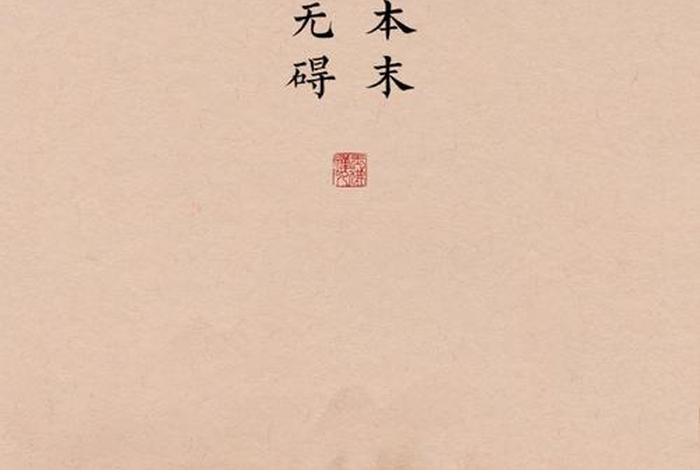 本末
无碍